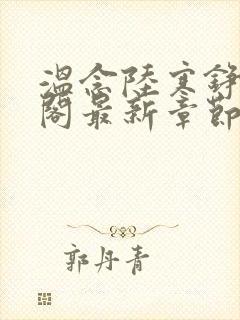 温念陆寒铮
阁最新章节
郭丹青